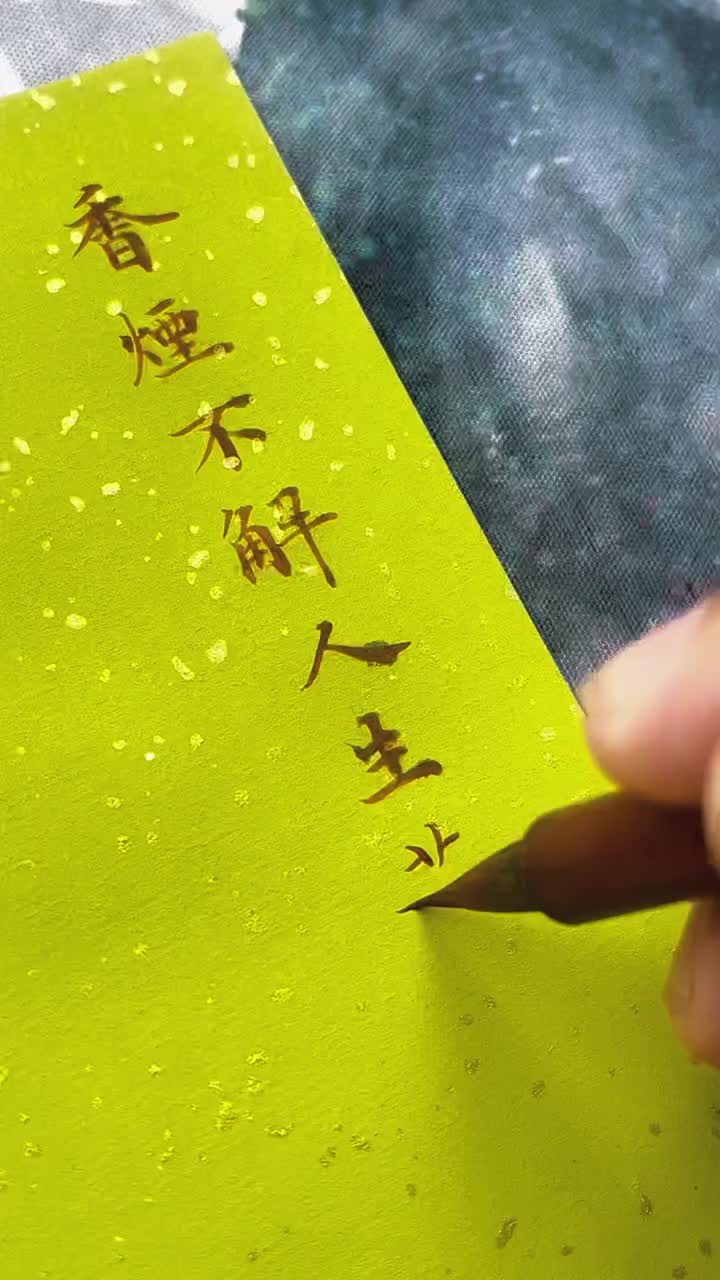 香煙不解人生